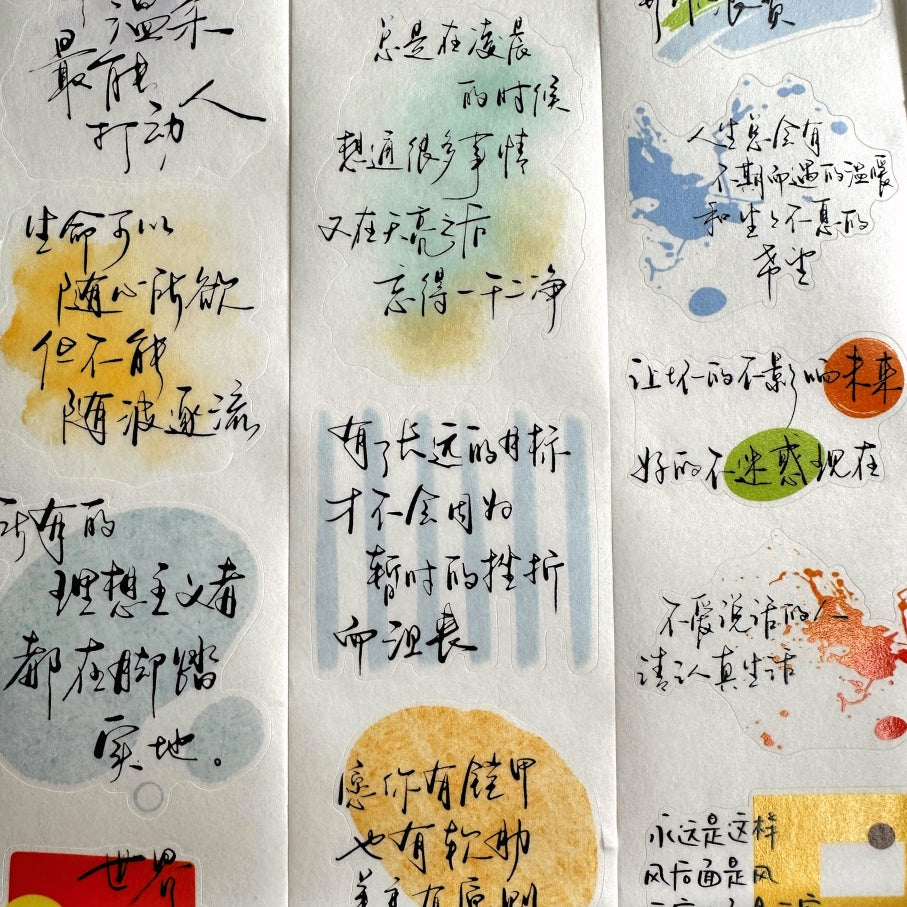 温柔
最能
打动人
生命可以
随心所欲
但不能
随波逐流
所有的
理想主义者
都在脚踏
实地。
世界
总是在凌晨
的时候
想通很多事情
又在天亮之后
忘得一干二净
有了长远的目标
才不会因为
暂时的挫折
而沮丧
愿你有铠甲
也有软肋
善良有原则
人生总会有
不期而遇的温暖
和生生不息的
希望
让坏的不影响未来
好的不迷惑现在
不爱说话的人
请认真生活
永远是这样
风后面是风